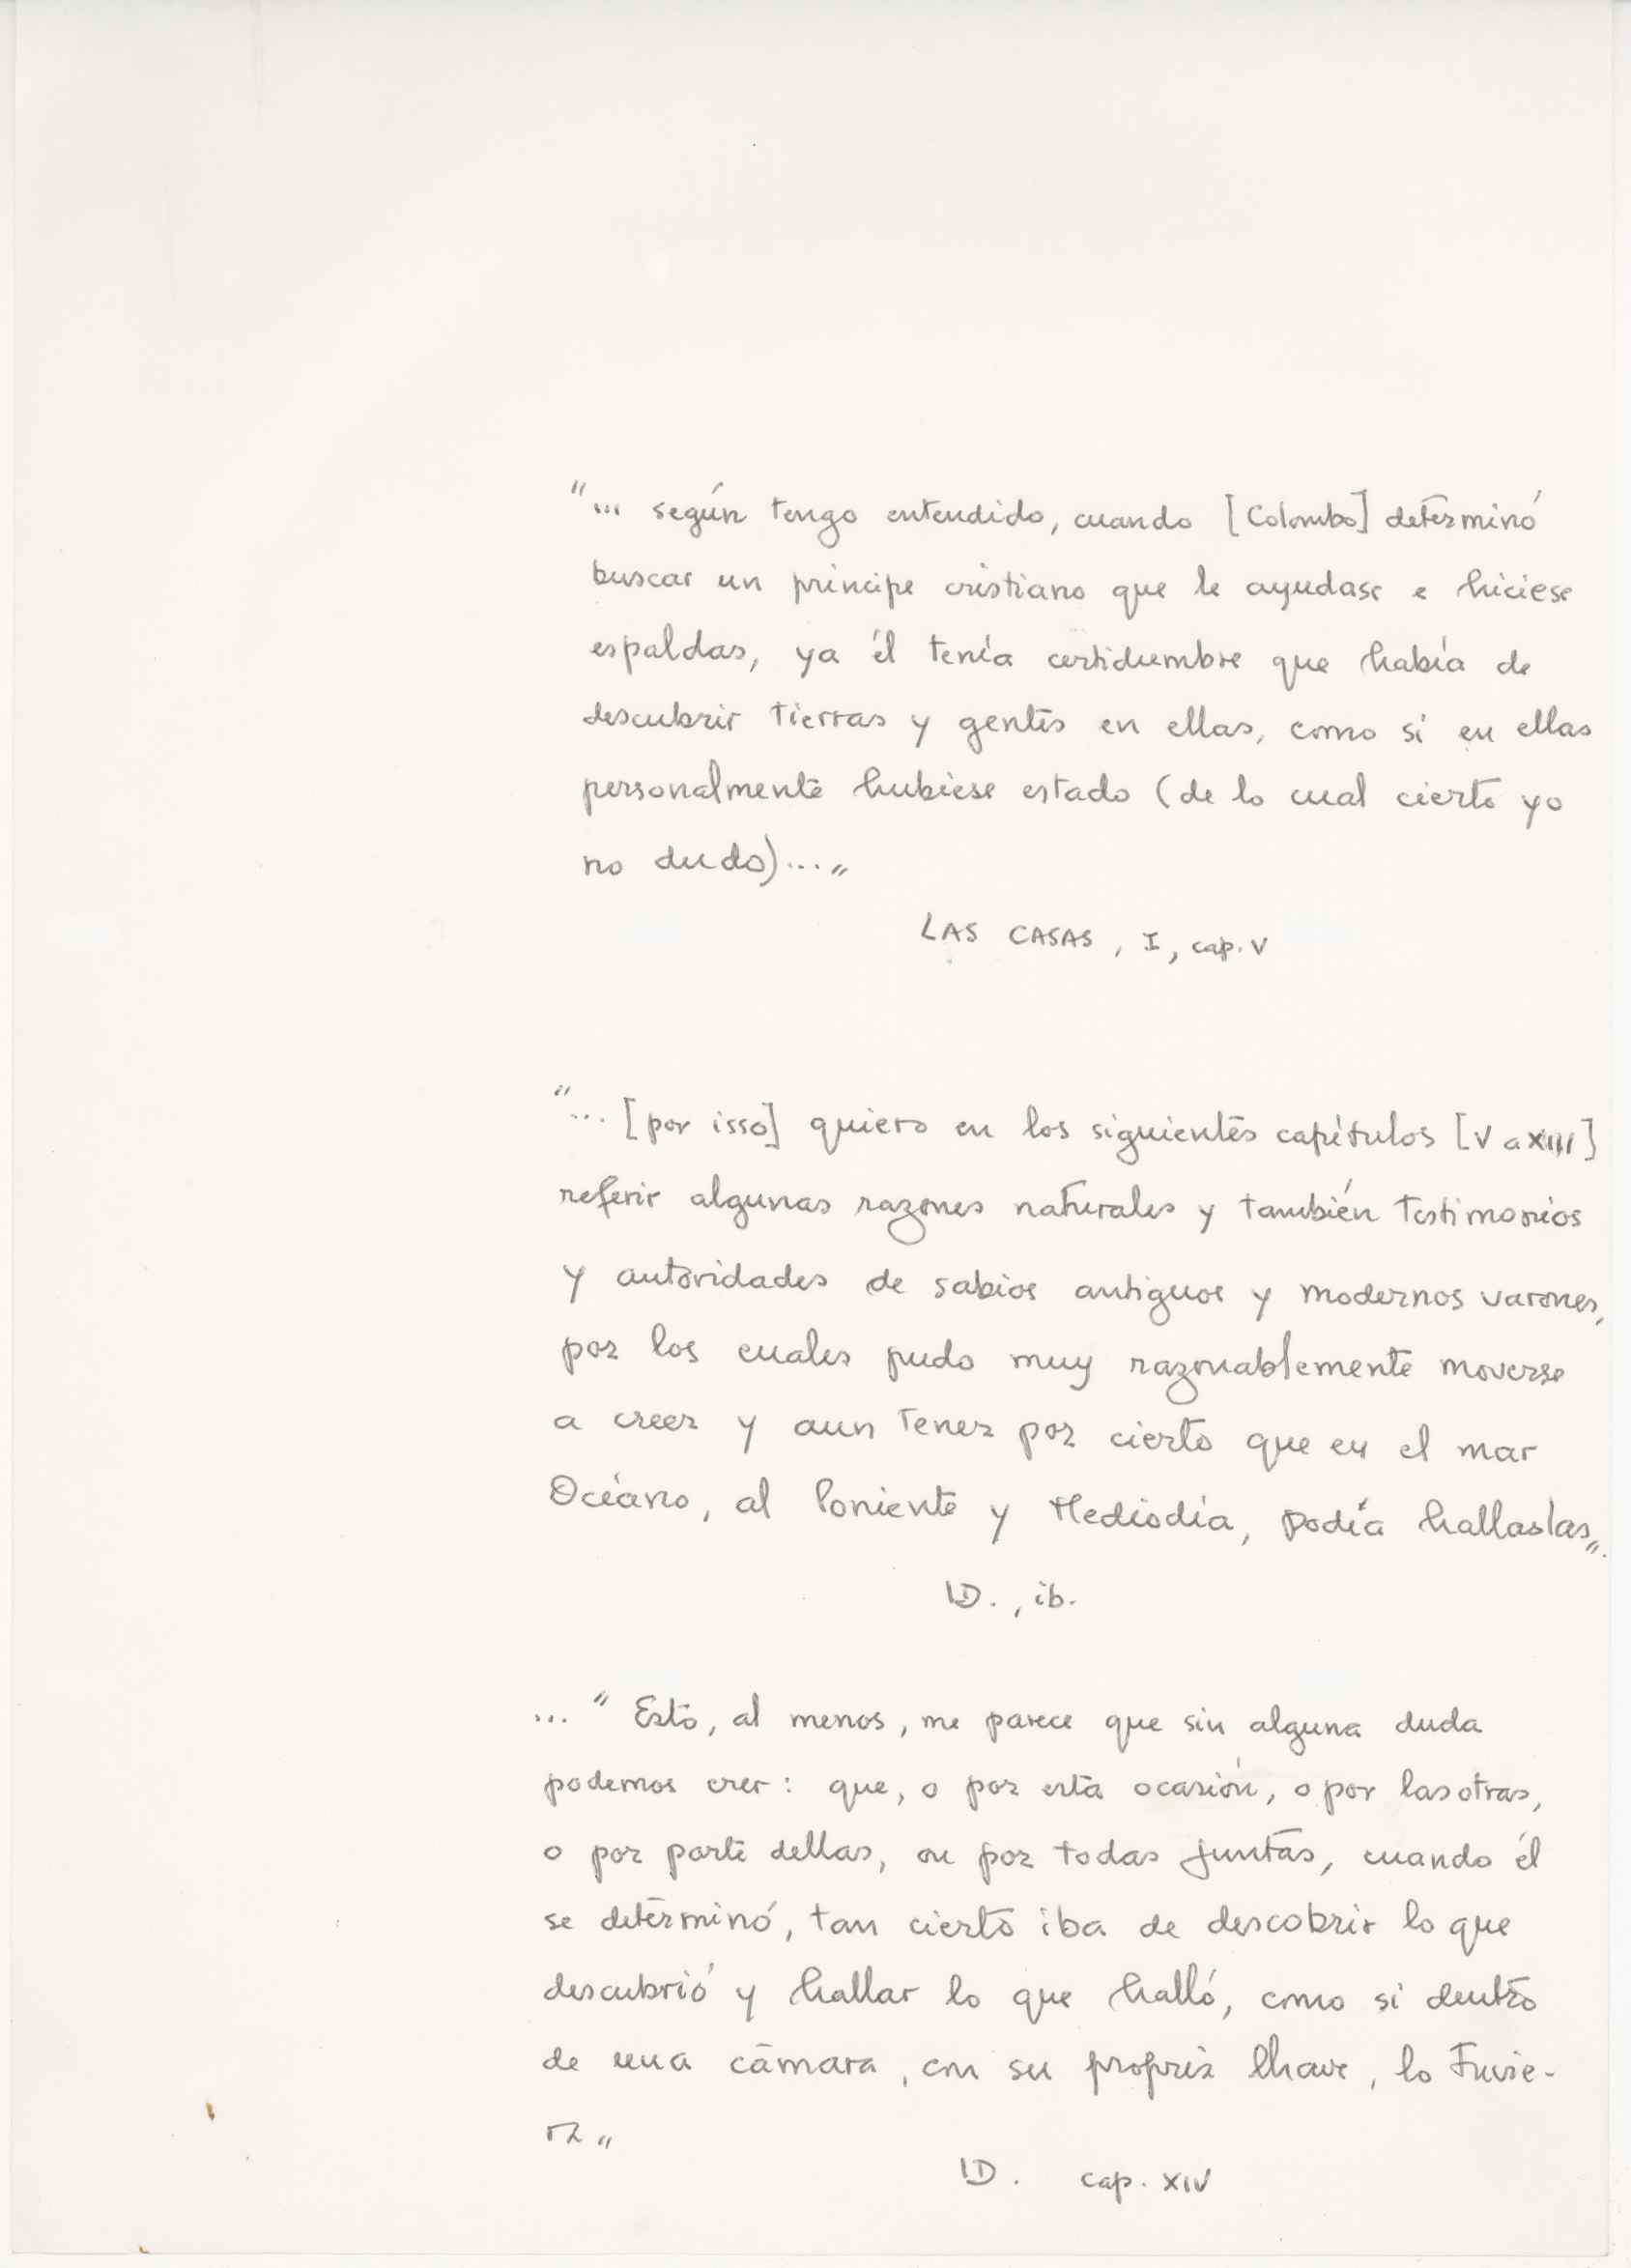 "... según tengo entendido, cuando [Colombo] determinó
buscar un príncipe cristiano que le ayudase e hiciese
espaldas, ya él tenía certidumbre que había de
descubrir tierras y gentes en ellas, como si en ellas
personalmente hubiese estado (de lo cual cierto yo
no dudo)..."
LAS CASAS, I, cap. V
"... [por isso] quiero en los siguientes capítulos [V a XIII]
referir algunas razones naturales y también testimonios
y autoridades de sabios antiguos y modernos varones,
por los cuales pudo muy razonablemente moverse
a creer y aun tener por cierto que en el mar
Océano, al Poniente y Mediodía, podía hallarlas".
ID., ib.
... "Esto, al menos, me parece que sin alguna duda
podemos crer: que, o por esta ocasión, o por las otras,
o por parte dellas, ou por todas juntas, cuando él
se determinó, tan cierto iba de descobrir lo que
descubrió y hallar lo que halló, como si dentro
de una cámara, con su propria lhave, lo tuvie-
ra"
ID. cap. XIV